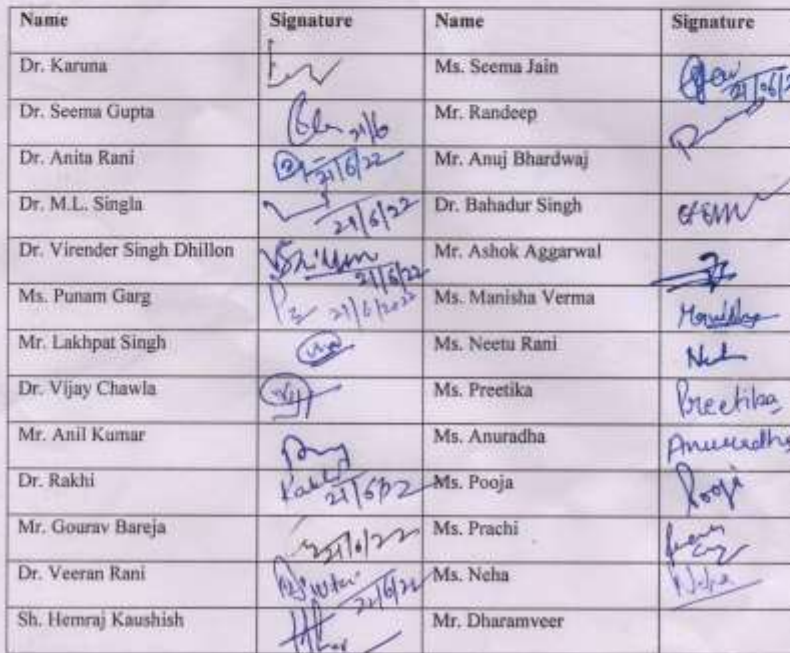 Name Signature Name Signature
Dr. Karuna Ms. Seema Jain 21/06/2
Dr. Seema Gupta 21/6 Mr. Randeep
Dr. Anita Rani 21/6/22 Mr. Anuj Bhardwaj
Dr. M.L. Singla 21/6/22 Dr. Bahadur Singh
Dr. Virender Singh Dhillon 21/6/22 Mr. Ashok Aggarwal
Ms. Punam Garg 21/6/2022 Ms. Manisha Verma
Mr. Lakhpat Singh Ms. Neetu Rani
Dr. Vijay Chawla Ms. Preetika Preetika
Mr. Anil Kumar Ms. Anuradha Anuradha
Dr. Rakhi 21/6/22 Ms. Pooja Pooja
Mr. Gourav Bareja 21/6/22 Ms. Prachi
Dr. Veeran Rani 21/6/22 Ms. Neha Neha
Sh. Hemraj Kaushish Mr. Dharamveer